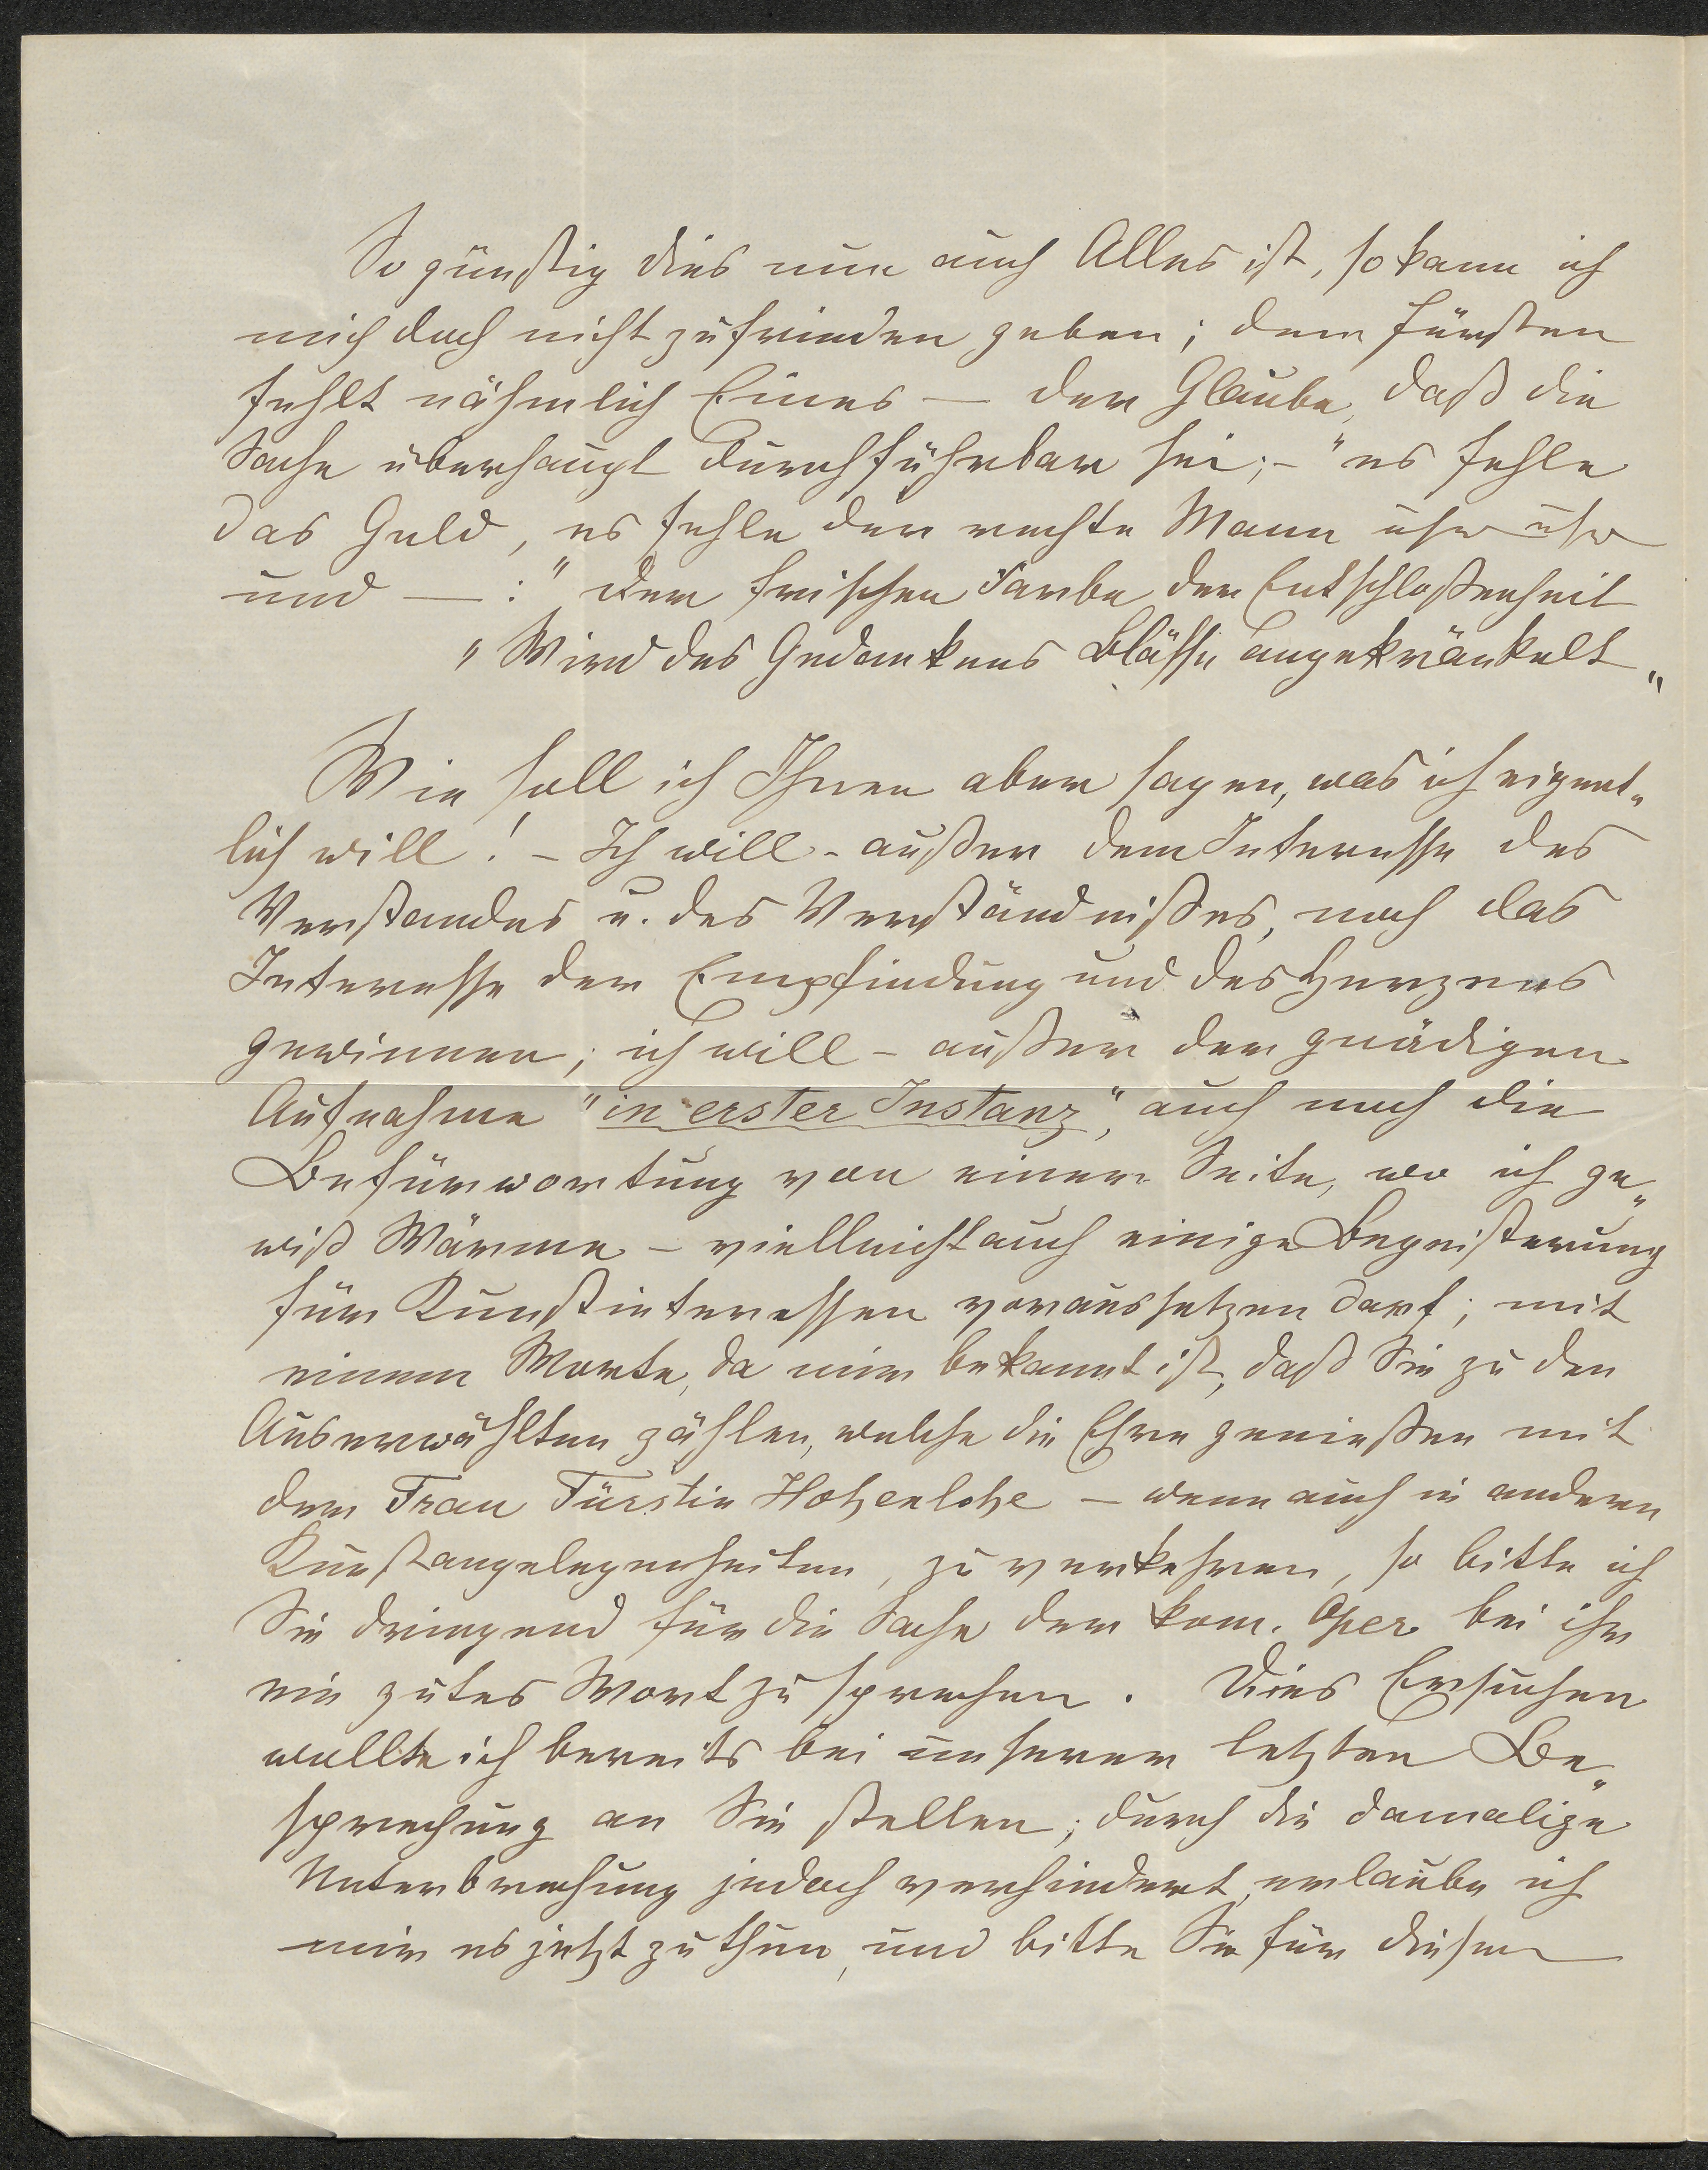 So günstig dies nun auch Alles ist, so kann ich
mich doch nicht zufrieden geben; dem Fürsten
fehlt nähmlich Eines — der Glaube, daß die
Sache überhaupt durchführbar sei; – "es fehle
das Geld, es fehle der rechte Mann usw usw
und — : "der frischen Farbe der Entschloßenheit
"Wird des Gedankens Blässe angekränkelt"
Wie soll ich Ihnen aber sagen, was ich eigent„
lich will! – Ich will – außer dem Interesse des
Verstandes u. des Verständnißes, noch das
Interesse der Empfindung und des Herzens
gewinnen; ich will – außer der gnädigen
Aufnahme "in erster Instanz", auch noch die
Befürwortung von einer Seite, wo ich ge„
wiß Wärme – vielleicht auch einige Begeisterung
für Kunstinteressen voraussetzen darf; mit
einem Worte, da mir bekannt ist, daß Sie zu den
Auserwählten zählen, welche die Ehre genießen mit
der Frau Fürstin Hohenlohe – wenn auch in anderen
Kunstangelegenheiten, zu verkehren, so bitte ich
Sie dringend für die Sache der kom. Oper bei ihr
ein gutes Wort zu sprechen. Dies Ersuchen
wollte ich bereits bei unserer letzten Be„
sprechung an Sie stellen; durch die damalige
Unterbrechung jedoch verhindert, erlaube ich
mir es jetzt zu thun, und bitte Sie für diesen